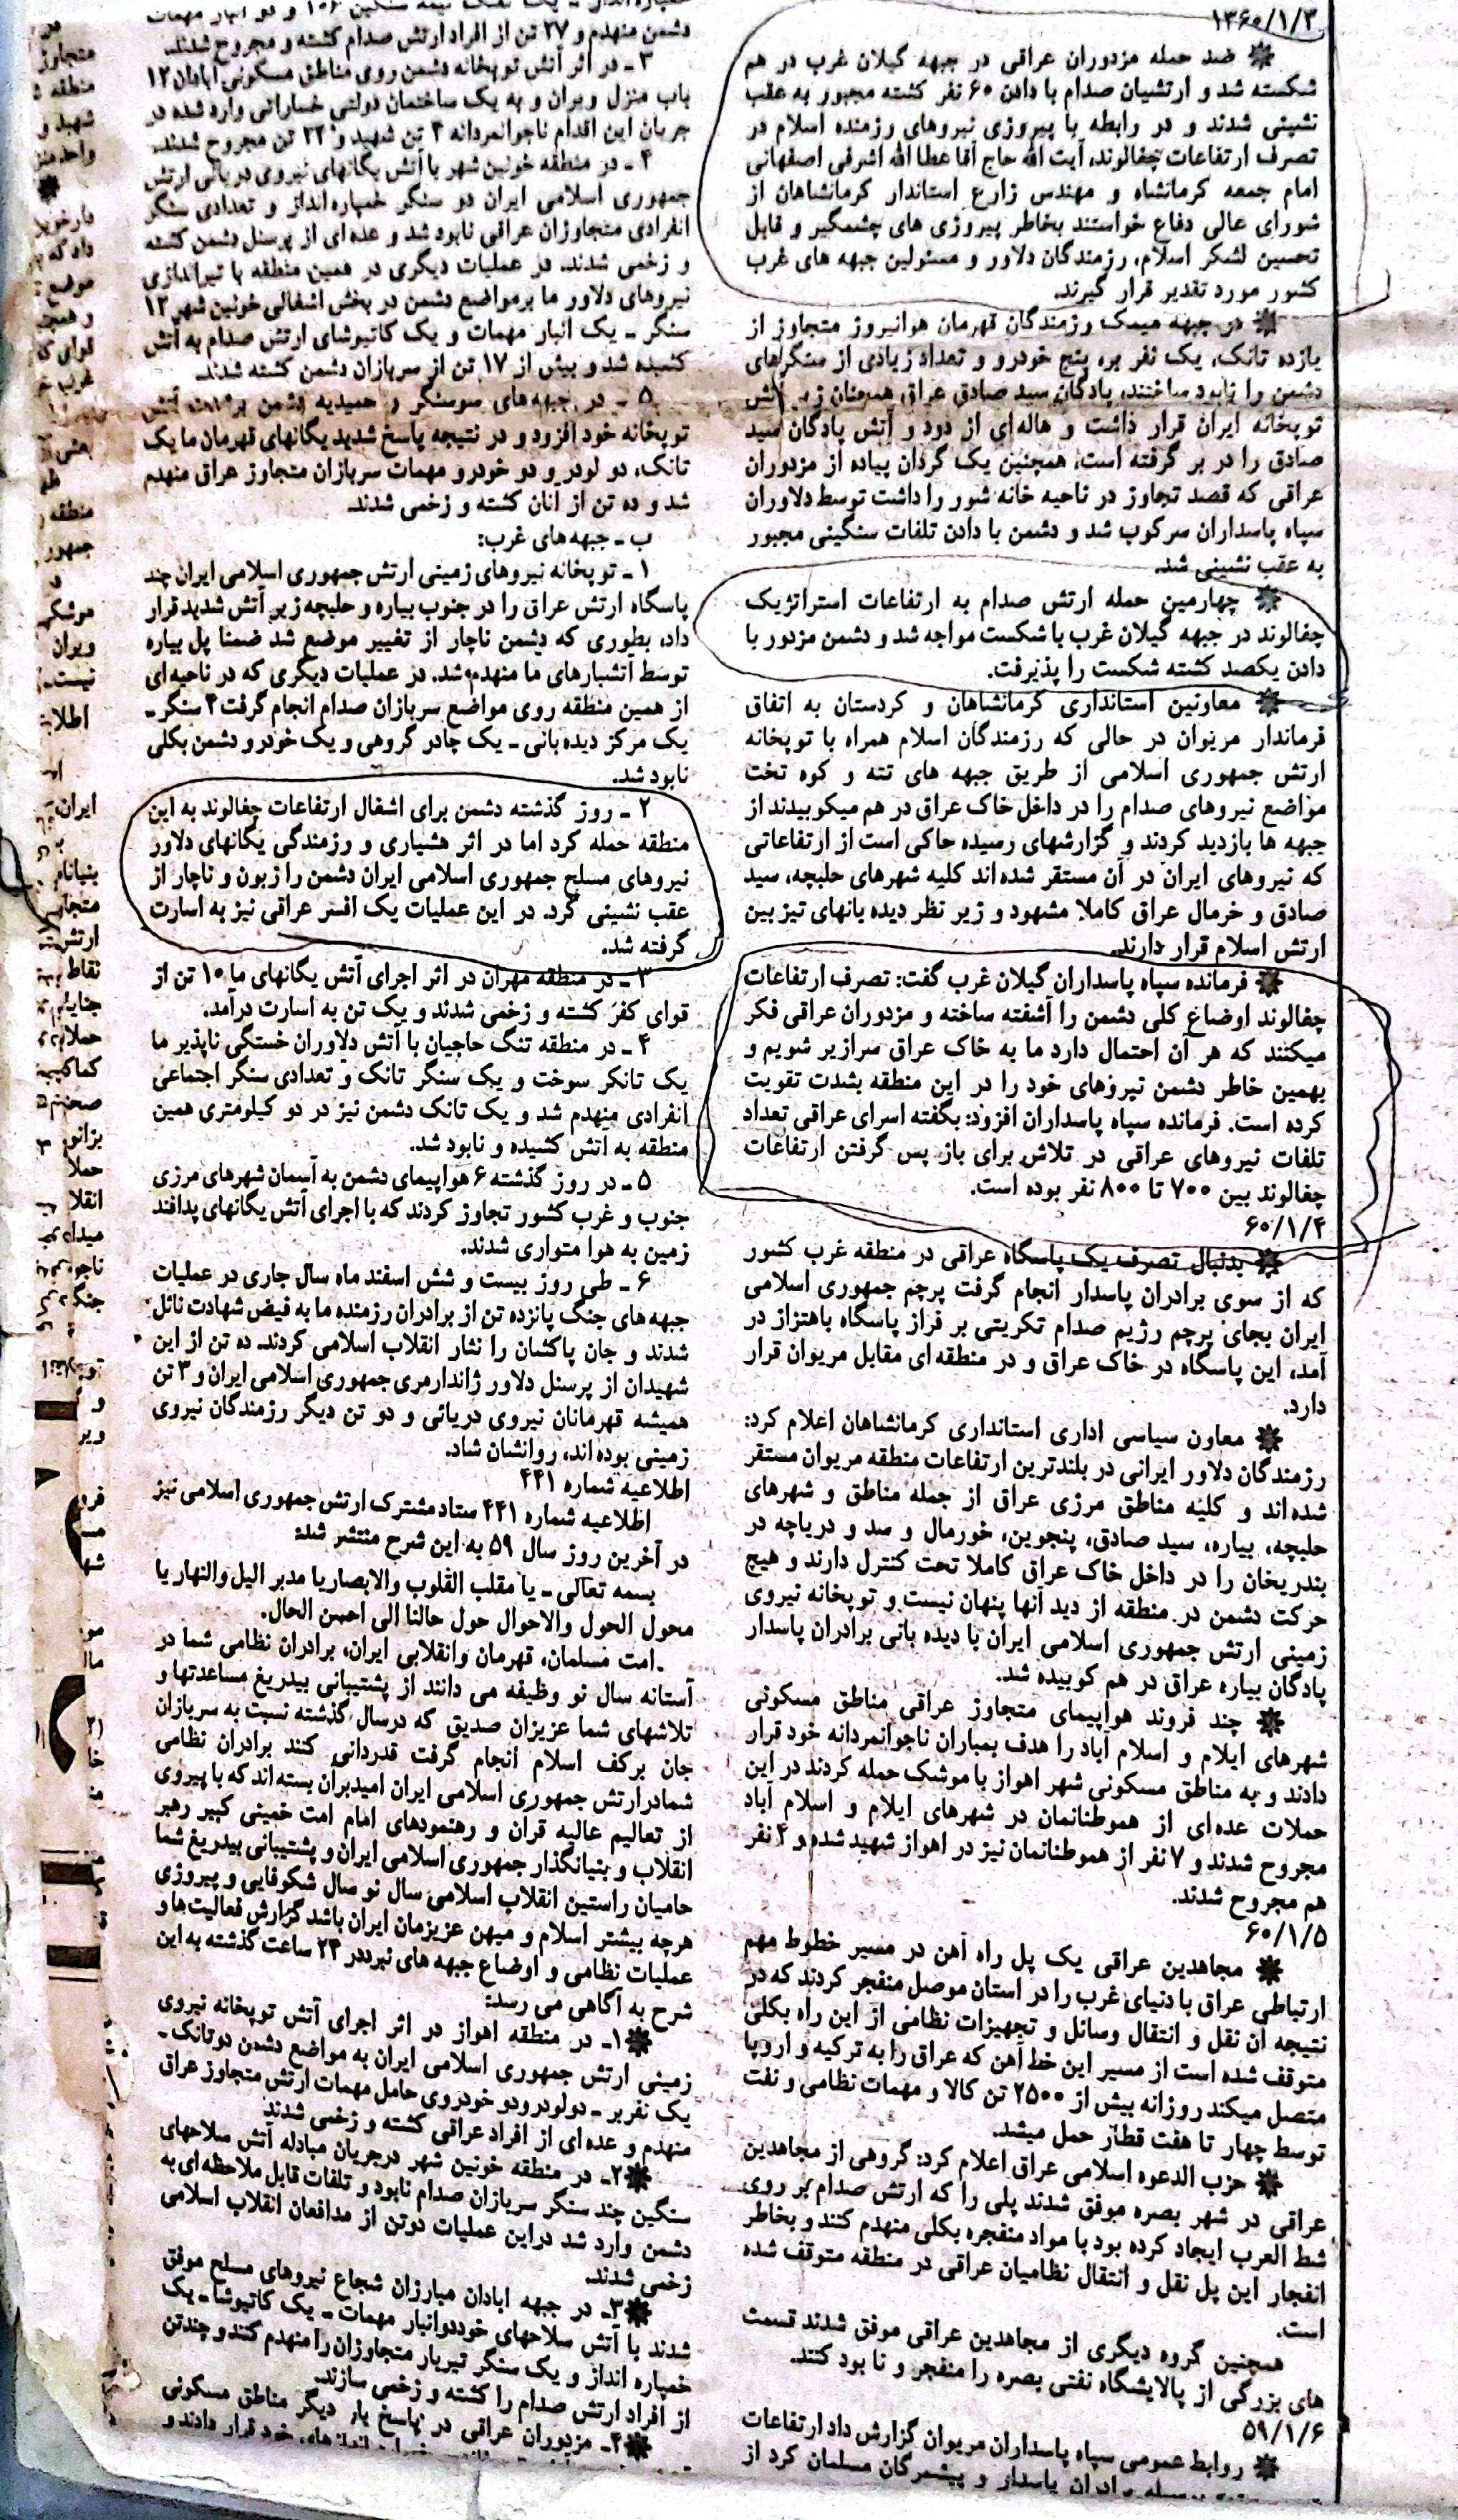 ۱۳۶۰/۱/۳
ضد حمله مزدوران عراقی در جبهه گیلان غرب در هم
شکسته شد و ارتشیان صدام با دادن ۶۰ نفر کشته مجبور به عقب
نشینی شدند و در رابطه با پیروزی نیروهای رزمنده اسلام در
تصرف ارتفاعات چغالوند، آیت الله حاج آقا عطا الله اشرفی اصفهانی
امام جمعه کرمانشاه و مهندس زارع استاندار کرمانشاهان از
شورای عالی دفاع خواستند بخاطر پیروزی های چشمگیر و قابل
تحسین لشکر اسلام، رزمندگان دلاور و مسئولین جبهه های غرب
کشور مورد تقدیر قرار گیرند.
در جبهه میمک رزمندگان قهرمان هوانیروز متجاوز از
یازده تانک، یک نفر بر، پنج خودرو و تعداد زیادی از سنگرهای
دشمن را نابود ساختند، پادگان سید صادق عراق، همچنان زیر آتش
توپخانه ایران قرار داشت و هاله‌ای از دود و آتش پادگان سید
صادق را در بر گرفته است، همچنین یک گردان پیاده از مزدوران
عراقی که قصد تجاوز در ناحیه خانه شور را داشت توسط دلاوران
سپاه پاسداران سرکوب شد و دشمن با دادن تلفات سنگینی مجبور
به عقب نشینی شد.
چهارمین حمله ارتش صدام به ارتفاعات استراتژیک
چغالوند در جبهه گیلان غرب با شکست مواجه شد و دشمن مزدور با
دادن یکصد کشته شکست را پذیرفت.
معاونین استانداری کرمانشاهان و کردستان به اتفاق
فرماندار مریوان در حالی که رزمندگان اسلام همراه با توپخانه
ارتش جمهوری اسلامی از طریق جبهه های تته و کوه تخت
مواضع نیروهای صدام را در داخل خاک عراق در هم میکوبیدند از
جبهه ها بازدید کردند و گزارشهای رسیده حاکی است از ارتفاعاتی
که نیروهای ایران در آن مستقر شده‌اند کلیه شهرهای حلبچه، سید
صادق و خرمال عراق کاملا مشهود و زیر نظر دیده بانهای تیز بین
ارتش اسلام قرار دارند.
فرمانده سپاه پاسداران گیلان غرب گفت: تصرف ارتفاعات
چغالوند اوضاع کلی دشمن را آشفته ساخته و مزدوران عراقی فکر
میکنند که هر آن احتمال دارد ما به خاک عراق سرازیر شویم و
بهمین خاطر دشمن نیروهای خود را در این منطقه بشدت تقویت
کرده است. فرمانده سپاه پاسداران افزود: بگفته اسرای عراقی تعداد
تلفات نیروهای عراقی در تلاش برای باز پس گرفتن ارتفاعات
چغالوند بین ۷۰۰ تا ۸۰۰ نفر بوده است.
۶۰/۱/۴
بدنبال تصرف یک پاسگاه عراقی در منطقه غرب کشور
که از سوی برادران پاسدار انجام گرفت پرچم جمهوری اسلامی
ایران بجای پرچم رژیم صدام تکریتی بر فراز پاسگاه باهتزاز در
آمد، این پاسگاه در خاک عراق و در منطقه‌ای مقابل مریوان قرار
دارد.
معاون سیاسی اداری استانداری کرمانشاهان اعلام کرد:
رزمندگان دلاور ایرانی در بلندترین ارتفاعات منطقه مریوان مستقر
شده‌اند و کلیه مناطق مرزی عراق از جمله مناطق و شهرهای
حلبچه، بیاره، سید صادق، پنجوین، خورمال و سد و دریاچه در
بندریخان را در داخل خاک عراق کاملا تحت کنترل دارند و هیچ
حرکت دشمن در منطقه از دید آنها پنهان نیست و توپخانه نیروی
زمینی ارتش جمهوری اسلامی ایران با دیده بانی برادران پاسدار
پادگان بیاره عراق در هم کوبیده شد.
چند فروند هواپیمای متجاوز عراقی مناطق مسکونی
شهرهای ایلام و اسلام آباد را هدف بمباران ناجوانمردانه خود قرار
دادند و به مناطق مسکونی شهر اهواز با موشک حمله کردند در این
حملات عده‌ای از هموطنانمان در شهرهای ایلام و اسلام آباد
مجروح شدند و ۷ نفر از هموطنانمان نیز در اهواز شهید شده و ۴ نفر
هم مجروح شدند.
۶۰/۱/۵
مجاهدین عراقی یک پل راه آهن در مسیر خطوط مهم
ارتباطی عراق با دنیای غرب را در استان موصل منفجر کردند که در
نتیجه آن نقل و انتقال وسائل و تجهیزات نظامی از این راه بکلی
متوقف شده است از مسیر این خط آهن که عراق را به ترکیه و اروپا
متصل میکند روزانه بیش از ۲۵۰۰ تن کالا و مهمات نظامی و نفت
توسط چهار تا هفت قطار حمل میشد.
حزب الدعوه اسلامی عراق اعلام کرد: گروهی از مجاهدین
عراقی در شهر بصره موفق شدند پلی را که ارتش صدام بر روی
شط العرب ایجاد کرده بود با مواد منفجره بکلی منهدم کنند و بخاطر
انفجار این پل نقل و انتقال نظامیان عراقی در منطقه متوقف شده
است.
همچنین گروه دیگری از مجاهدین عراقی موفق شدند قسمت
های بزرگی از پالایشگاه نفتی بصره را منفجر و نابود کنند.
۵۹/۱/۶
روابط عمومی سپاه پاسداران مریوان گزارش داد ارتفاعات
برادران پاسدار و پیشمرگان مسلمان کرد از
دشمن منهدم و ۲۷ تن از افراد ارتش صدام کشته و مجروح شدند.
۳ـ در اثر آتش توپخانه دشمن روی مناطق مسکونی آبادان ۱۲
باب منزل ویران و به یک ساختمان دولتی خساراتی وارد شده در
جریان این اقدام ناجوانمردانه ۴ تن شهید و ۲۲ تن مجروح شدند.
۴ـ در منطقه خونین شهر با آتش یگانهای نیروی دریائی ارتش
جمهوری اسلامی ایران دو سنگر خمپاره انداز و تعدادی سنگر
انفرادی متجاوزان عراقی نابود شد و عده‌ای از پرسنل دشمن کشته
و زخمی شدند. در عملیات دیگری در همین منطقه با تیراندازی
نیروهای دلاور ما بر مواضع دشمن در بخش اشغالی خونین شهر ۱۲
سنگر ـ یک انبار مهمات و یک کاتیوشای ارتش صدام به آتش
کشیده شد و بیش از ۱۷ تن از سربازان دشمن کشته شدند.
۵ ـ در جبهه‌های سوسنگرد و حمیدیه دشمن بر شدت آتش
توپخانه خود افزود و در نتیجه پاسخ شدید یگانهای قهرمان ما یک
تانک، دو لودر و دو خودرو مهمات سربازان متجاوز عراق منهدم
شد و ده تن از آنان کشته و زخمی شدند.
ب ـ جبهه‌های غرب:
۱ـ توپخانه نیروهای زمینی ارتش جمهوری اسلامی ایران چند
پاسگاه ارتش عراق را در جنوب بیاره و حلبچه زیر آتش شدید قرار
داد، بطوری که دشمن ناچار از تغییر موضع شد ضمنا پل بیاره
توسط آتشبارهای ما منهدم شد. در عملیات دیگری که در ناحیه‌ای
از همین منطقه روی مواضع سربازان صدام انجام گرفت ۴ سنگر ـ
یک مرکز دیده بانی ـ یک چادر گروهی و یک خودرو دشمن بکلی
نابود شد.
۲ـ روز گذشته دشمن برای اشغال ارتفاعات چغالوند به این
منطقه حمله کرد اما در اثر هشیاری و رزمندگی یگانهای دلاور
نیروهای مسلح جمهوری اسلامی ایران دشمن را زبون و ناچار از
عقب نشینی کرد. در این عملیات یک افسر عراقی نیز به اسارت
گرفته شد.
۳ـ در منطقه مهران در اثر اجرای آتش یگانهای ما ۱۰ تن از
قوای کفر کشته و زخمی شدند و یک تن به اسارت درآمد.
۴ـ در منطقه تنگ حاجیان با آتش دلاوران خستگی ناپذیر ما
یک تانکر سوخت و یک سنگر تانک و تعدادی سنگر اجتماعی
انفرادی منهدم شد و یک تانک دشمن نیز در دو کیلومتری همین
منطقه به آتش کشیده و نابود شد.
۵ـ در روز گذشته ۶ هواپیمای دشمن به آسمان شهرهای مرزی
جنوب و غرب کشور تجاوز کردند که با اجرای آتش یگانهای پدافند
زمین به هوا متواری شدند.
۶ـ طی روز بیست و شش اسفند ماه سال جاری در عملیات
جبهه‌های جنگ پانزده تن از برادران رزمنده ما به فیض شهادت نائل
شدند و جان پاکشان را نثار انقلاب اسلامی کردند. ده تن از این
شهیدان از پرسنل دلاور ژاندارمری جمهوری اسلامی ایران و ۳ تن
همیشه قهرمانان نیروی دریائی و دو تن دیگر رزمندگان نیروی
زمینی بوده‌اند، روانشان شاد.
اطلاعیه شماره ۴۴۱
اطلاعیه شماره ۴۴۱ ستاد مشترک ارتش جمهوری اسلامی نیز
در آخرین روز سال ۵۹ به این شرح منتشر شد:
بسمه تعالی ـ یا مقلب القلوب والابصار یا مدبر الیل والنهار یا
محول الحول والاحوال حول حالنا الی احسن الحال.
امت مسلمان، قهرمان وانقلابی ایران، برادران نظامی شما در
آستانه سال نو وظیفه می دانند از پشتیبانی بیدریغ مساعدتها و
تلاشهای شما عزیزان صدیق که درسال گذشته نسبت به سربازان
جان برکف اسلام انجام گرفت قدردانی کنند برادران نظامی
شمادرارتش جمهوری اسلامی ایران امیدبرآن بسته‌اند که با پیروی
از تعالیم عالیه قرآن و رهنمودهای امام امت خمینی کبیر رهبر
انقلاب و بنیانگذار جمهوری اسلامی ایران و پشتیبانی بیدریغ شما
حامیان راستین انقلاب اسلامی سال نو سال شکوفایی و پیروزی
هرچه بیشتر اسلام و میهن عزیزمان ایران باشد گزارش فعالیت‌ها و
عملیات نظامی و اوضاع جبهه های نبرددر ۲۴ ساعت گذشته به این
شرح به آگاهی می رسد:
۱ـ در منطقه اهواز در اثر اجرای آتش توپخانه نیروی
زمینی ارتش جمهوری اسلامی ایران به مواضع دشمن دوتانک ـ
یک نفربر ـ دولودرودو خودروی حامل مهمات ارتش متجاوز عراق
منهدم و عده‌ای از افراد عراقی کشته و زخمی شدند.
۲ـ در منطقه خونین شهر درجریان مبادله آتش سلاحهای
سنگین چند سنگر سربازان صدام نابود و تلفات قابل ملاحظه‌ای به
دشمن وارد شد دراین عملیات دوتن از مدافعان انقلاب اسلامی
زخمی شدند.
۳ـ در جبهه آبادان مبارزان شجاع نیروهای مسلح موفق
شدند با آتش سلاحهای خوددوانبار مهمات ـ یک کاتیوشا ـ یک
خمپاره انداز و یک سنگر تیربار متجاوزان را منهدم کنند و چندتن
از افراد ارتش صدام را کشته و زخمی سازند.
۴ـ مزدوران عراقی در پاسخ بار دیگر مناطق مسکونی
خود قرار دادند و